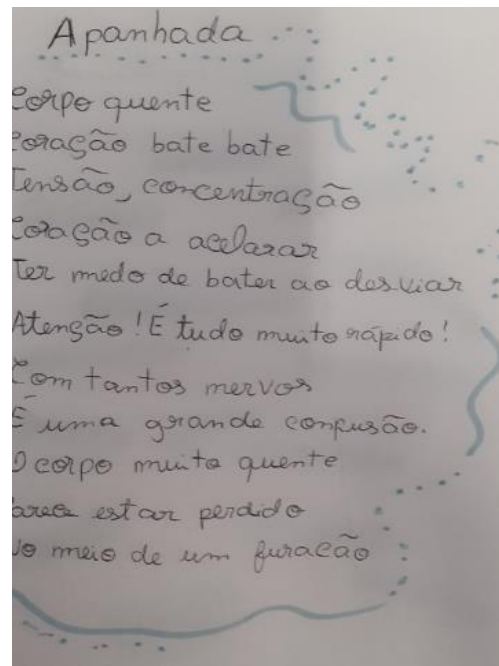 Apanhada
Corpo quente
Coração bate bate
Tensão, concentração
Coração a acelarar
Ter medo de bater ao desviar
Atenção! É tudo muito rápido!
Com tantos nervos
É uma grande confusão.
O corpo muito quente
parece estar perdido
No meio de um furacão